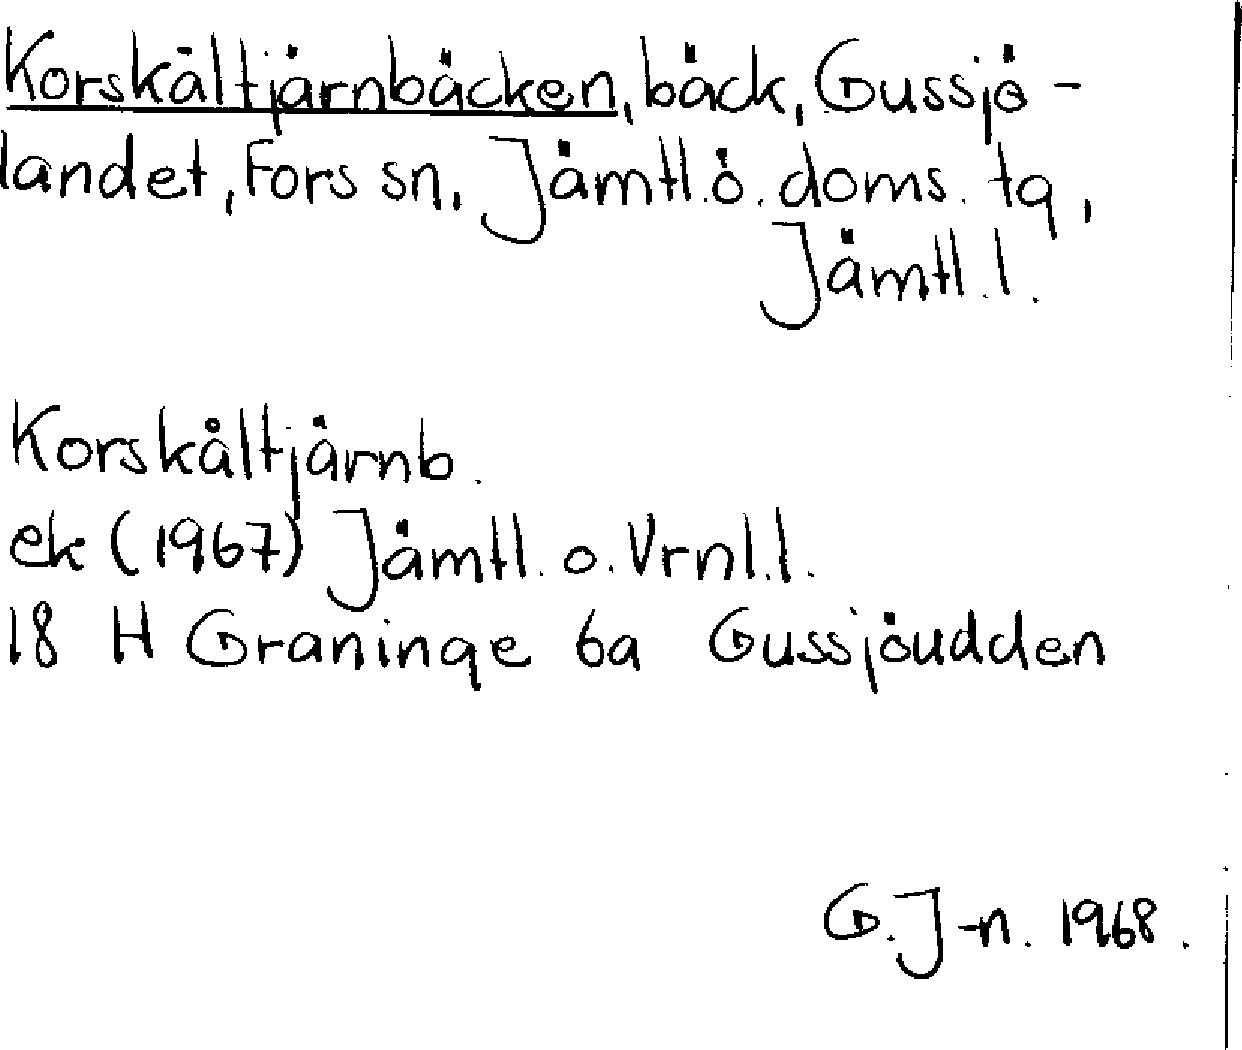 Korskältjärnbäcken, bäck, Gussjö-
landet, Fors sn, Jämtl.ö. doms. tg,
Jämtl.l.
Korskåltjärnb.
ek (1967) Jämtl. o. Vrnl.l.
18 H Graninge 6a Gussjöudden
G.J-n. 1968.